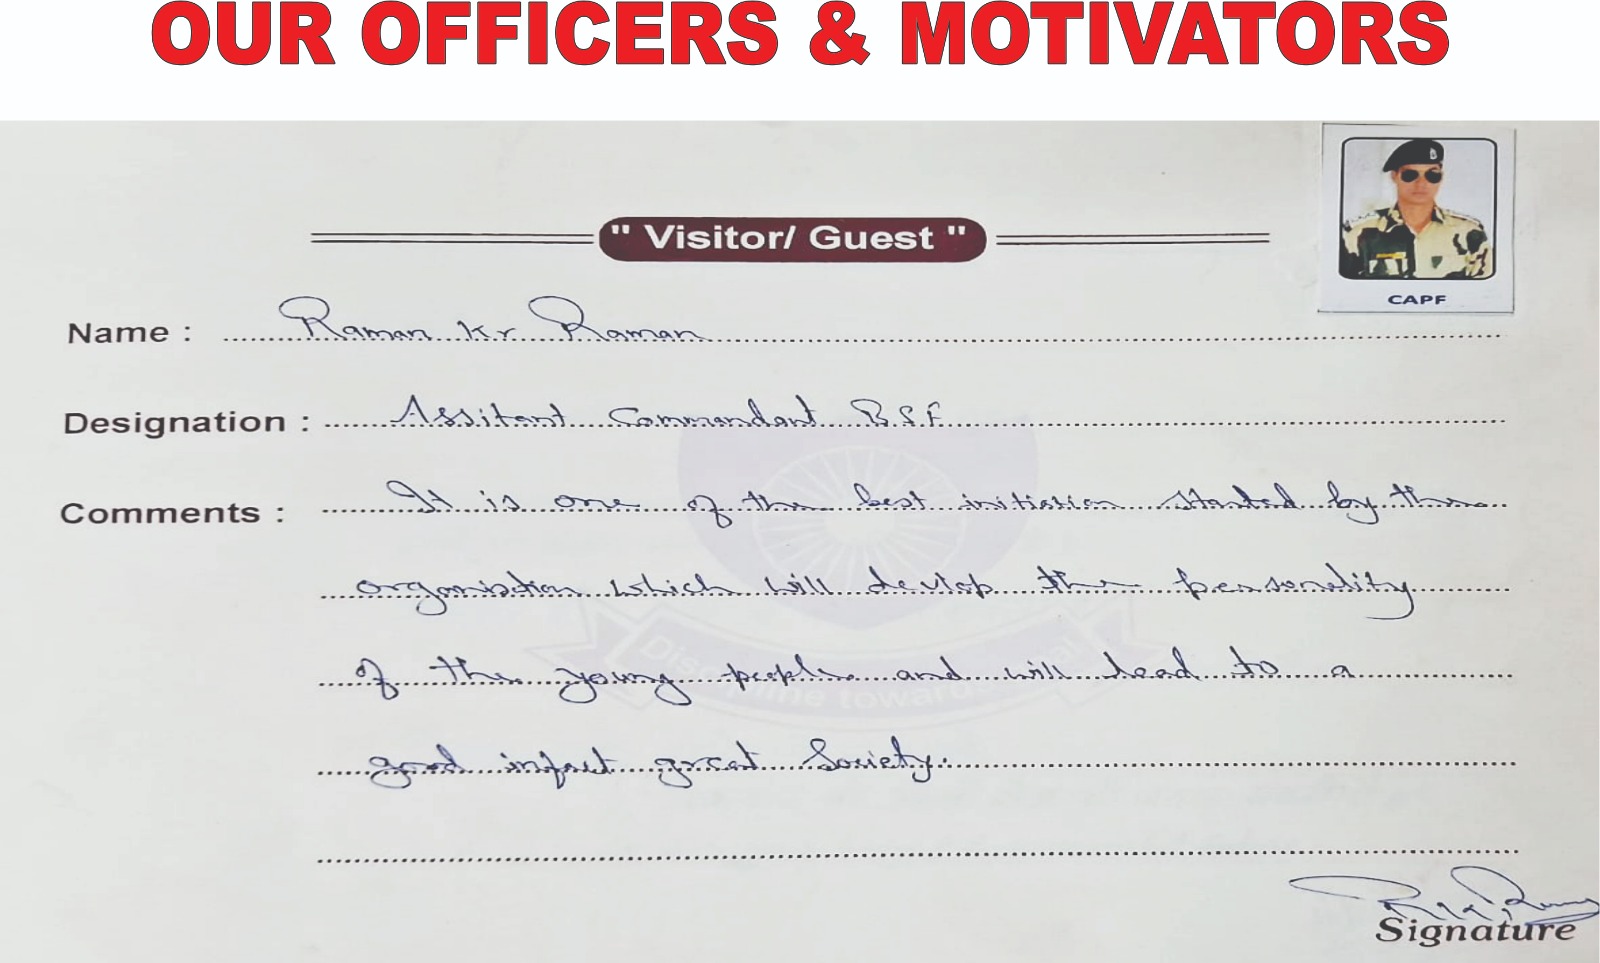 OUR OFFICERS & MOTIVATORS
" Visitor/ Guest "
CAPF
Name : Raman Kr. Raman
Designation : Assitant Commandant B.S.F
Comments : It is one of the best initiation started by the
organisation which will develop the personality
of the young people and will lead to a
good infact great Society.
Discipline towards
Signature